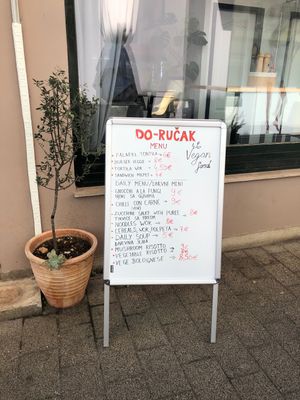 DO-RUČAK
MENU
Vegan
food
FALAFEL TORTILJA → 6€
BURGER VEGGE → 6€
TORTILJA VEG. → 4,50€
SENDVIČ
DAILY MENU/DNEVNI MENI
GNOCCHI ALA FUNGI
NJOKI SA GLJIVAMA 9€
CHILLI CON CARNE → 9€
(CHILI SA SOJOM)
ZUCCHINE SAUCE WITH PUREE → 8€
TIKVICE SA PIREOM
NOODLES WOK → 8€
CEREALS, WOK, POLPETA → 7€
DAILY SOUP → 5€
DNEVNA JUHA
MUSHROOM RISOTTO → 9€
VEGETABLE RISOTTO →
VEGE BOLOGNESE → 8,50€